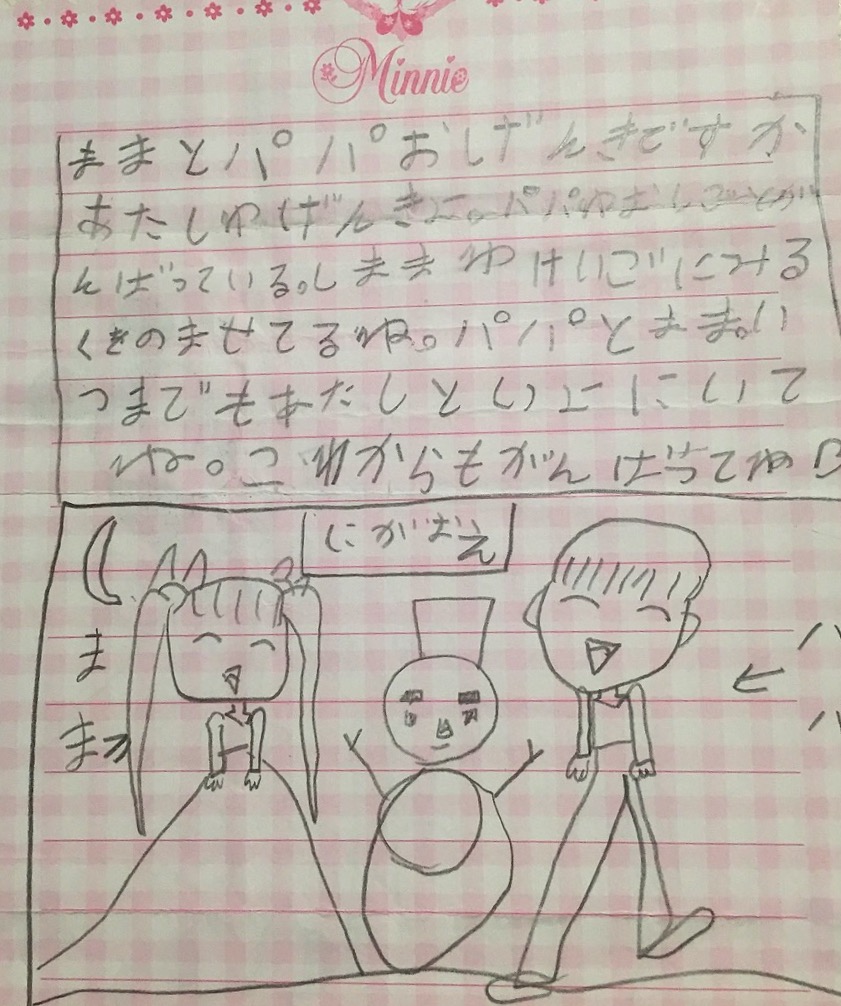 Minnie
ままとパパおげんきですか
あたしゆげんきよ。パパゆおしごとが
んばっている。しままゆけいごにみる
くをのませてるね。パパとまま。い
つまでもあたしと にいて
ね。これからもがんばってね
にがおえ
まま